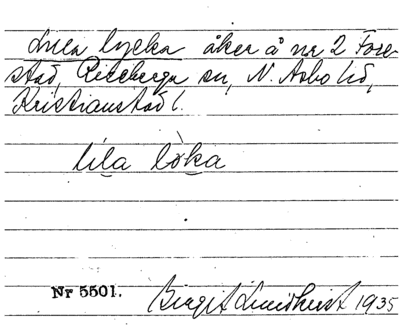 Lilla lycka åker å nr 2 Fore-
stad, Riseberga sn, N. Åsbo hd,
Kristianstad l.
lila lòka
Nr 5501.
Birgit Lundkvist 1935